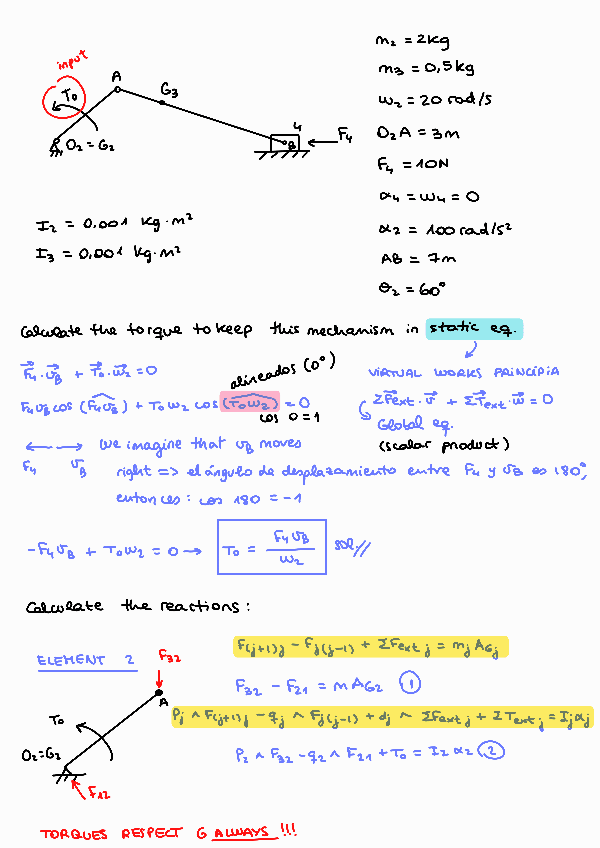 input
T₀
A
G₃
O₂ = G₂
4
B
F₄
m₂ = 2kg
m₃ = 0,5kg
ω₂ = 20 rad/s
O₂A = 3m
F₄ = 10N
α₄ = ω₄ = 0
α₂ = 100 rad/s²
AB = 7m
θ₂ = 60°
I₂ = 0.001 kg·m²
I₃ = 0.001 kg·m²
Calculate the torque to keep this mechanism in static eq.
F₄·v_B + T₀·ω₂ = 0
alineados (0°)
VIRTUAL WORKS PRINCIPIA
F₄ v_B cos (F₄ v_B) + T₀ ω₂ cos (T₀ ω₂) = 0
cos 0 = 1
ΣFext·v + ΣText·ω = 0
Global eq.
(scalar product)
F₄ v_B
We imagine that v_B moves
right => el ángulo de desplazamiento entre F₄ y v_B es 180°,
entonces: cos 180 = -1
-F₄ v_B + T₀ ω₂ = 0 → T₀ = F₄ v_B / ω₂ sol //
Calculate the reactions:
ELEMENT 2
F₃₂
A
T₀
O₂=G₂
F₁₂
F(j+1)j - Fj(j-1) + ΣFext j = mj AGj
F₃₂ - F₂₁ = m AG₂ ①
Pj ∧ F(j+1)j - qj ∧ Fj(j-1) + dj ∧ ΣFext j + ΣText j = Ij αj
P₂ ∧ F₃₂ - q₂ ∧ F₂₁ + T₀ = I₂ α₂ ②
TORQUES RESPECT G ALWAYS !!!